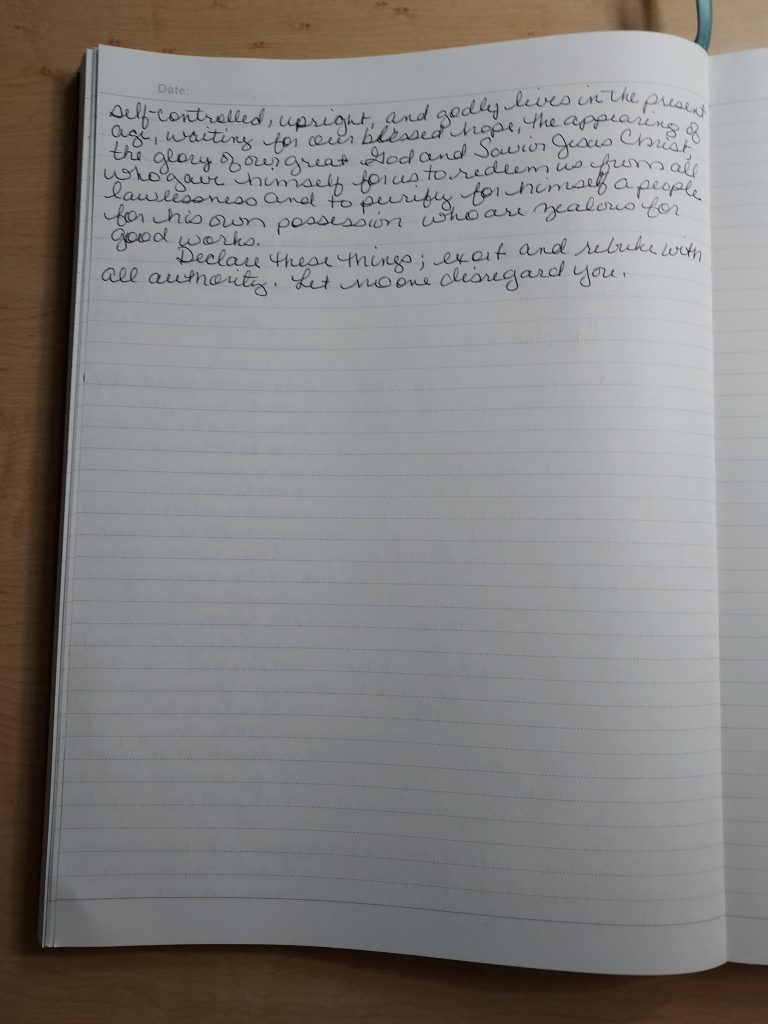 Date:
self-controlled, upright, and godly lives in the present
age, waiting for our blessed hope, the appearing of
the glory of our great God and Savior Jesus Christ,
who gave himself for us to redeem us from all
lawlessness and to purify for himself a people
for his own possession who are zealous for
good works.
Declare these things; exort and rebuke with
all authority. Let no one disregard you.